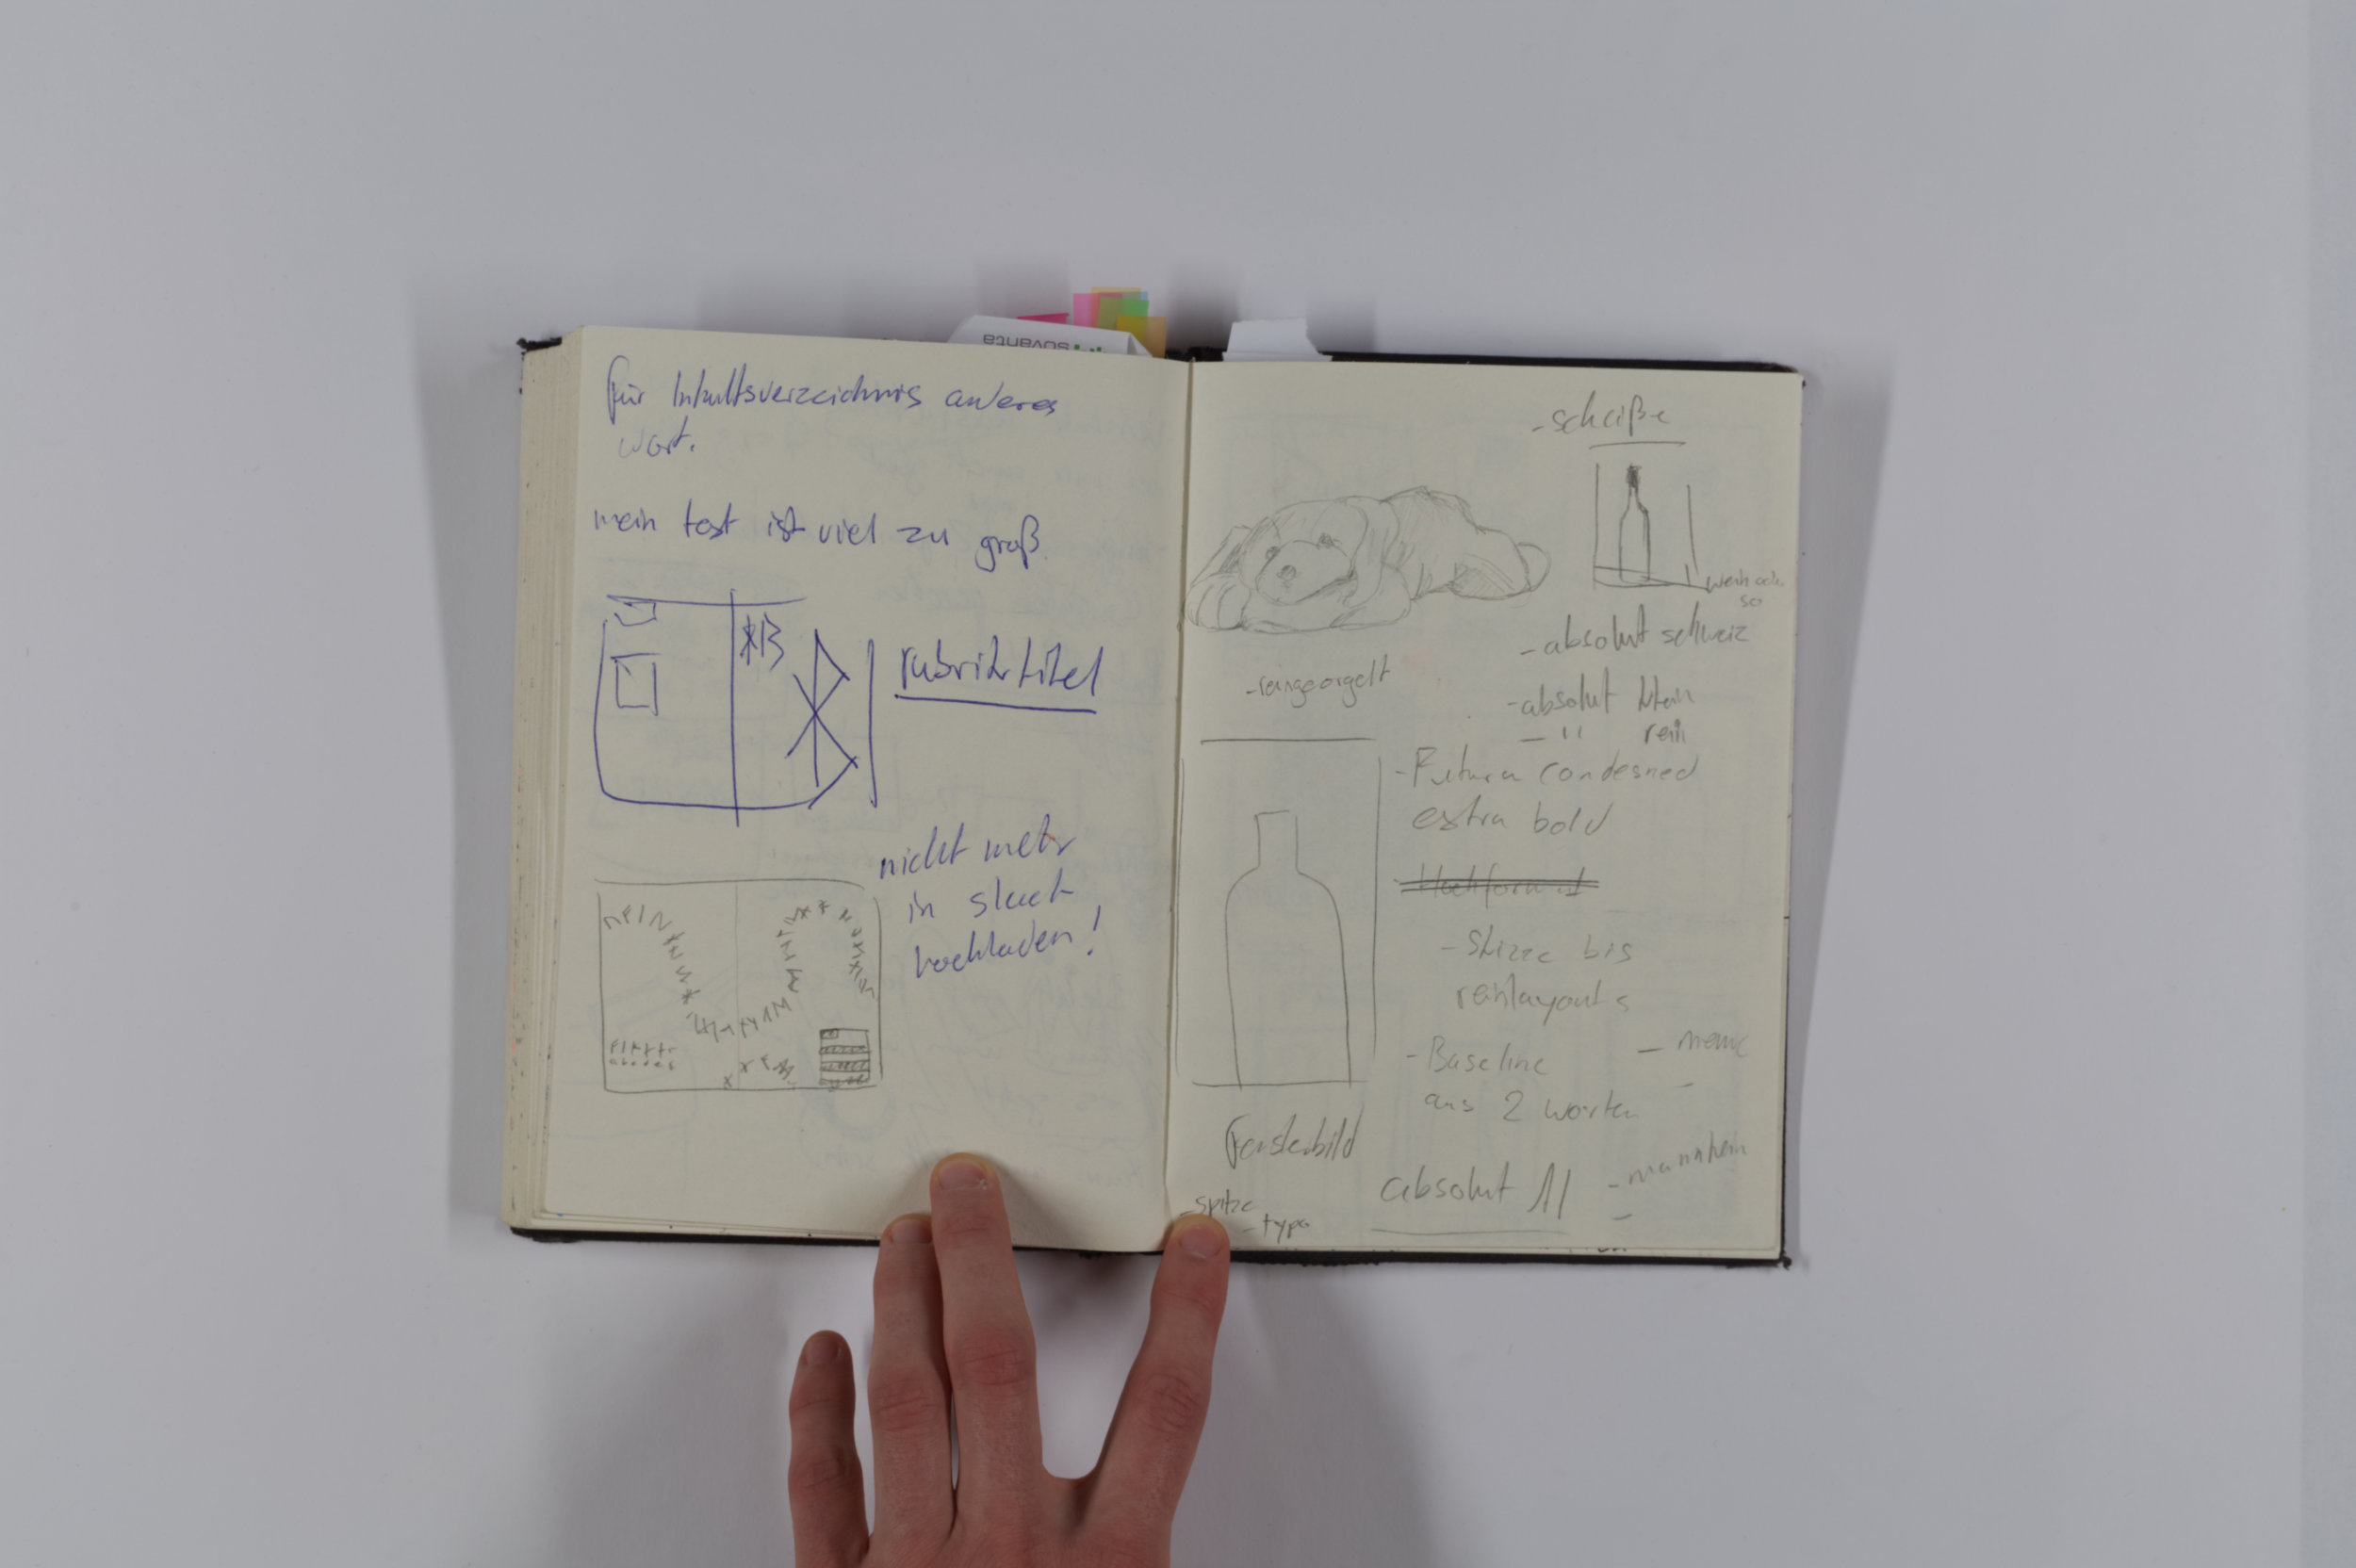 sovanta
für Inhaltsverzeichnis anderes
wort.
mein text ist viel zu groß.
rubriktitel
nicht mehr
in slack
hochladen!
-scheiße
-rangeorgelt
-absolut schweiz
-absolut klein
- " rein
-Futura condesned
extra bold
Hochformat
- Skizze bis
reinlayouts
-Baseline
aus 2 worten
- meme
fensterbild
absolut 11
- mannheim
-spitze
-typo